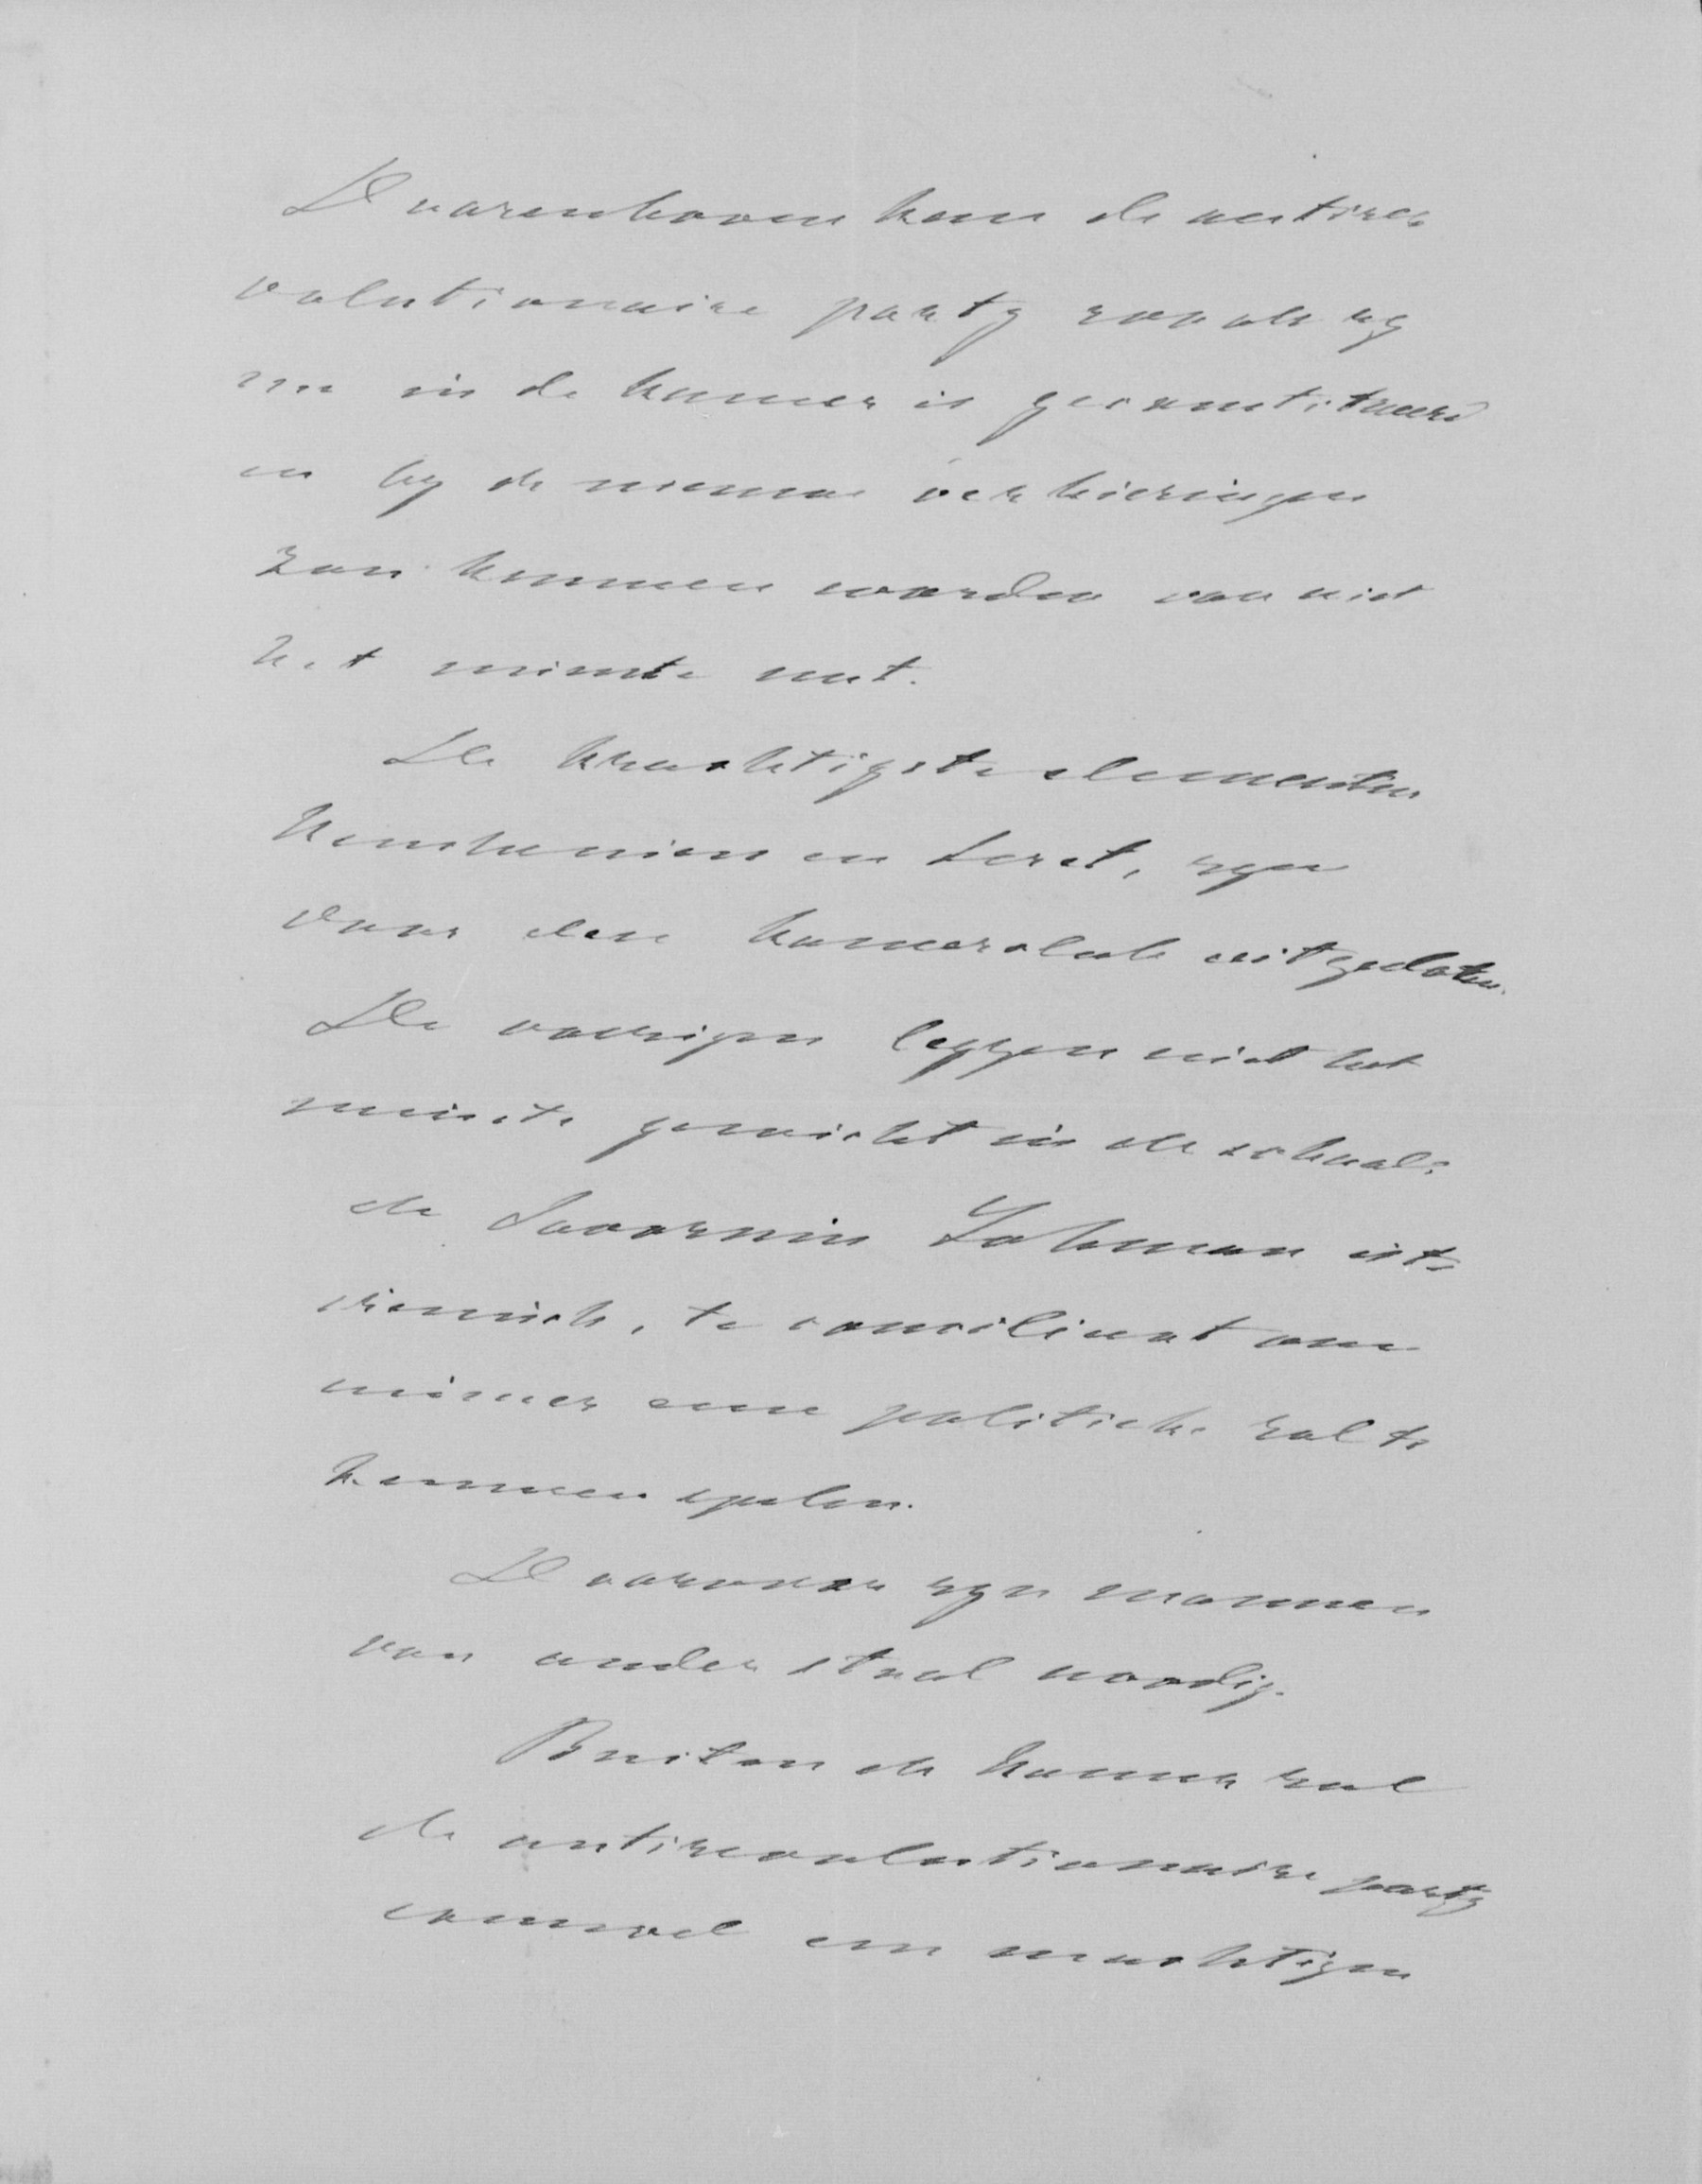 Daarenboven kan de antirev
volutionaire party zooals zy
nu in de kamer is geconstitueerd
en by de nieuwe verkiezingen
zou kunnen worden van niet
het minste nut.
De krachtigste elementen
Keuchenius en Seret, zyn
door den kamerclub uitgesloten.
De overigen leggen niet het
minste gewicht in de schaal:
de Savornin Lohman is te
ironisch, te conciliant om
immer eene politieke rol te
kunnen spelen.
Daarvoor zyn mannen
van ander staal noodig.
Buiten de kamer zal
de antirevolutionaire party
evenwel een machtigen